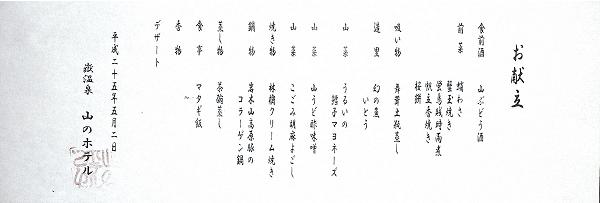 お献立
食前酒　山ぶどう酒
前菜　鱒わさ
蟹玉焼き
蛍烏賊時雨煮
帆立香焼き
桜餅
吸い物　舞茸土瓶蒸し
造里　幻の魚
いとう
山菜　うるいの
鱈子マヨネーズ
山菜　山うど酢味噌
山菜　こごみ胡麻よごし
焼き物　林檎クリーム焼き
鍋物　岩木山高原豚の
コラーゲン鍋
蒸し物　茶碗蒸し
食事　マタギ飯
香物　〜
デザート
平成二十五年五月二日
嶽温泉　山のホテル